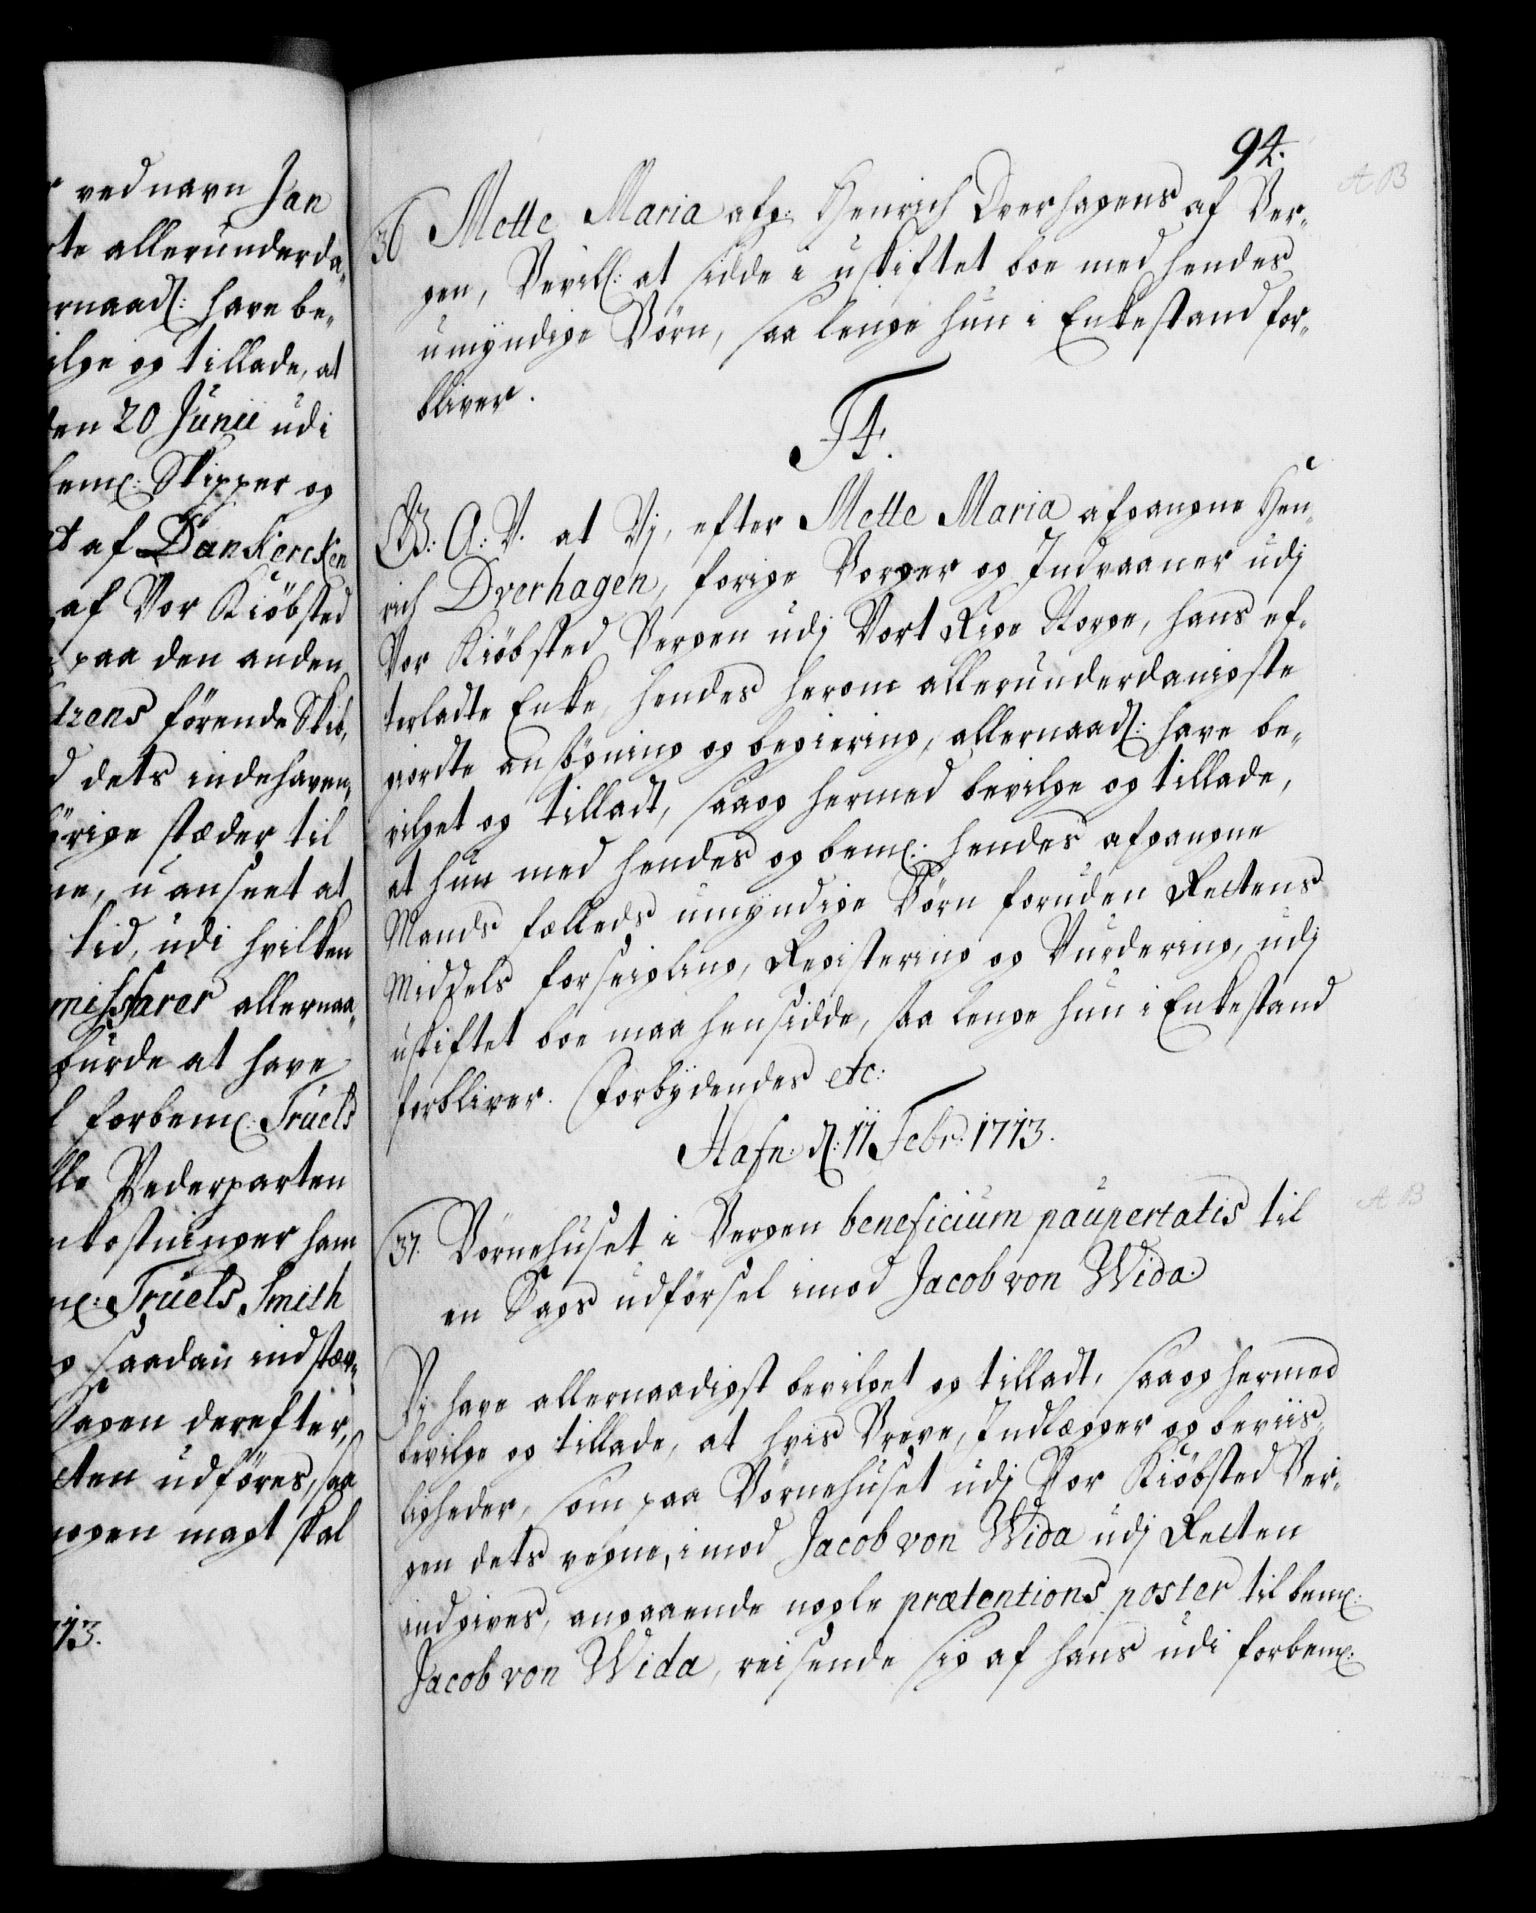 r ved navn Jan
rte allerunderda„
ernaadl: have be„
ilge og tillade, at
den 20 Junii udi
bem̄: Skipper og
et af Dankercken
af Vor Kiöbsted
paa den anden
trens förende Skib,
d dets indehaven„
örige stæder til
ne, u anseet at
tid, udi hvilken
missarer allernaa„
burde at have
l forbem̄: Truels
lle Vederparten
nkostninger ham
m̄: Truels Smith
g saadan indstæv„
Sagen derefter,
cten udföres, saa
ogen magt skal
713.
94.
A B
36 Mette Maria afg: Henrich Dverhagens af Ber„
gen, Bevill: at sidde i uskiftet boe med hendes
umyndige Börn, saa lenge hun i Enkestand for„
bliver.
F4.
G: A: V. at Vj, efter Mette Maria afgangne Hen„
rich Dverhagen, forige Borger og Indvaaner udj
Vor Kiöbsted Bergen udj Vort Rige Norge, hans ef„
terladte Enke, hendes herom allerunderdanigste
giordte ansögning og begiering, allernaadl: have be„
vilget og tilladt, saa og hermed bevilge og tillade,
at hun med hendes og bem̄: hendes afgangne
Mands fælleds umyndige Börn foruden Rettens
Middels forseigling, Registering og Vurdering, udj
uskiftet boe maa hensidde, saa lenge hun i Enkestand
forbliver. Forbydendes etc:
Hafn: d: 11 Febr: 1713.
A B
37. Börnehuset i Bergen beneficium paupertatis til
en Sags udförsel imod Jacob von Wida.
Vi have allernaadigst bevilget og tilladt, saa og hermed
bevilge og tillade, at hvis Breve, Indlægger og beviis„
ligheder, som paa Börnehuset udj Vor Kiöbsted Ber„
gen dets vegne, imod Jacob von Wida udj Retten
indgives, angaaende nogle prætentions poster til bem̄:
Jacob von Wida, reisende sig af hans udi forbem̄: